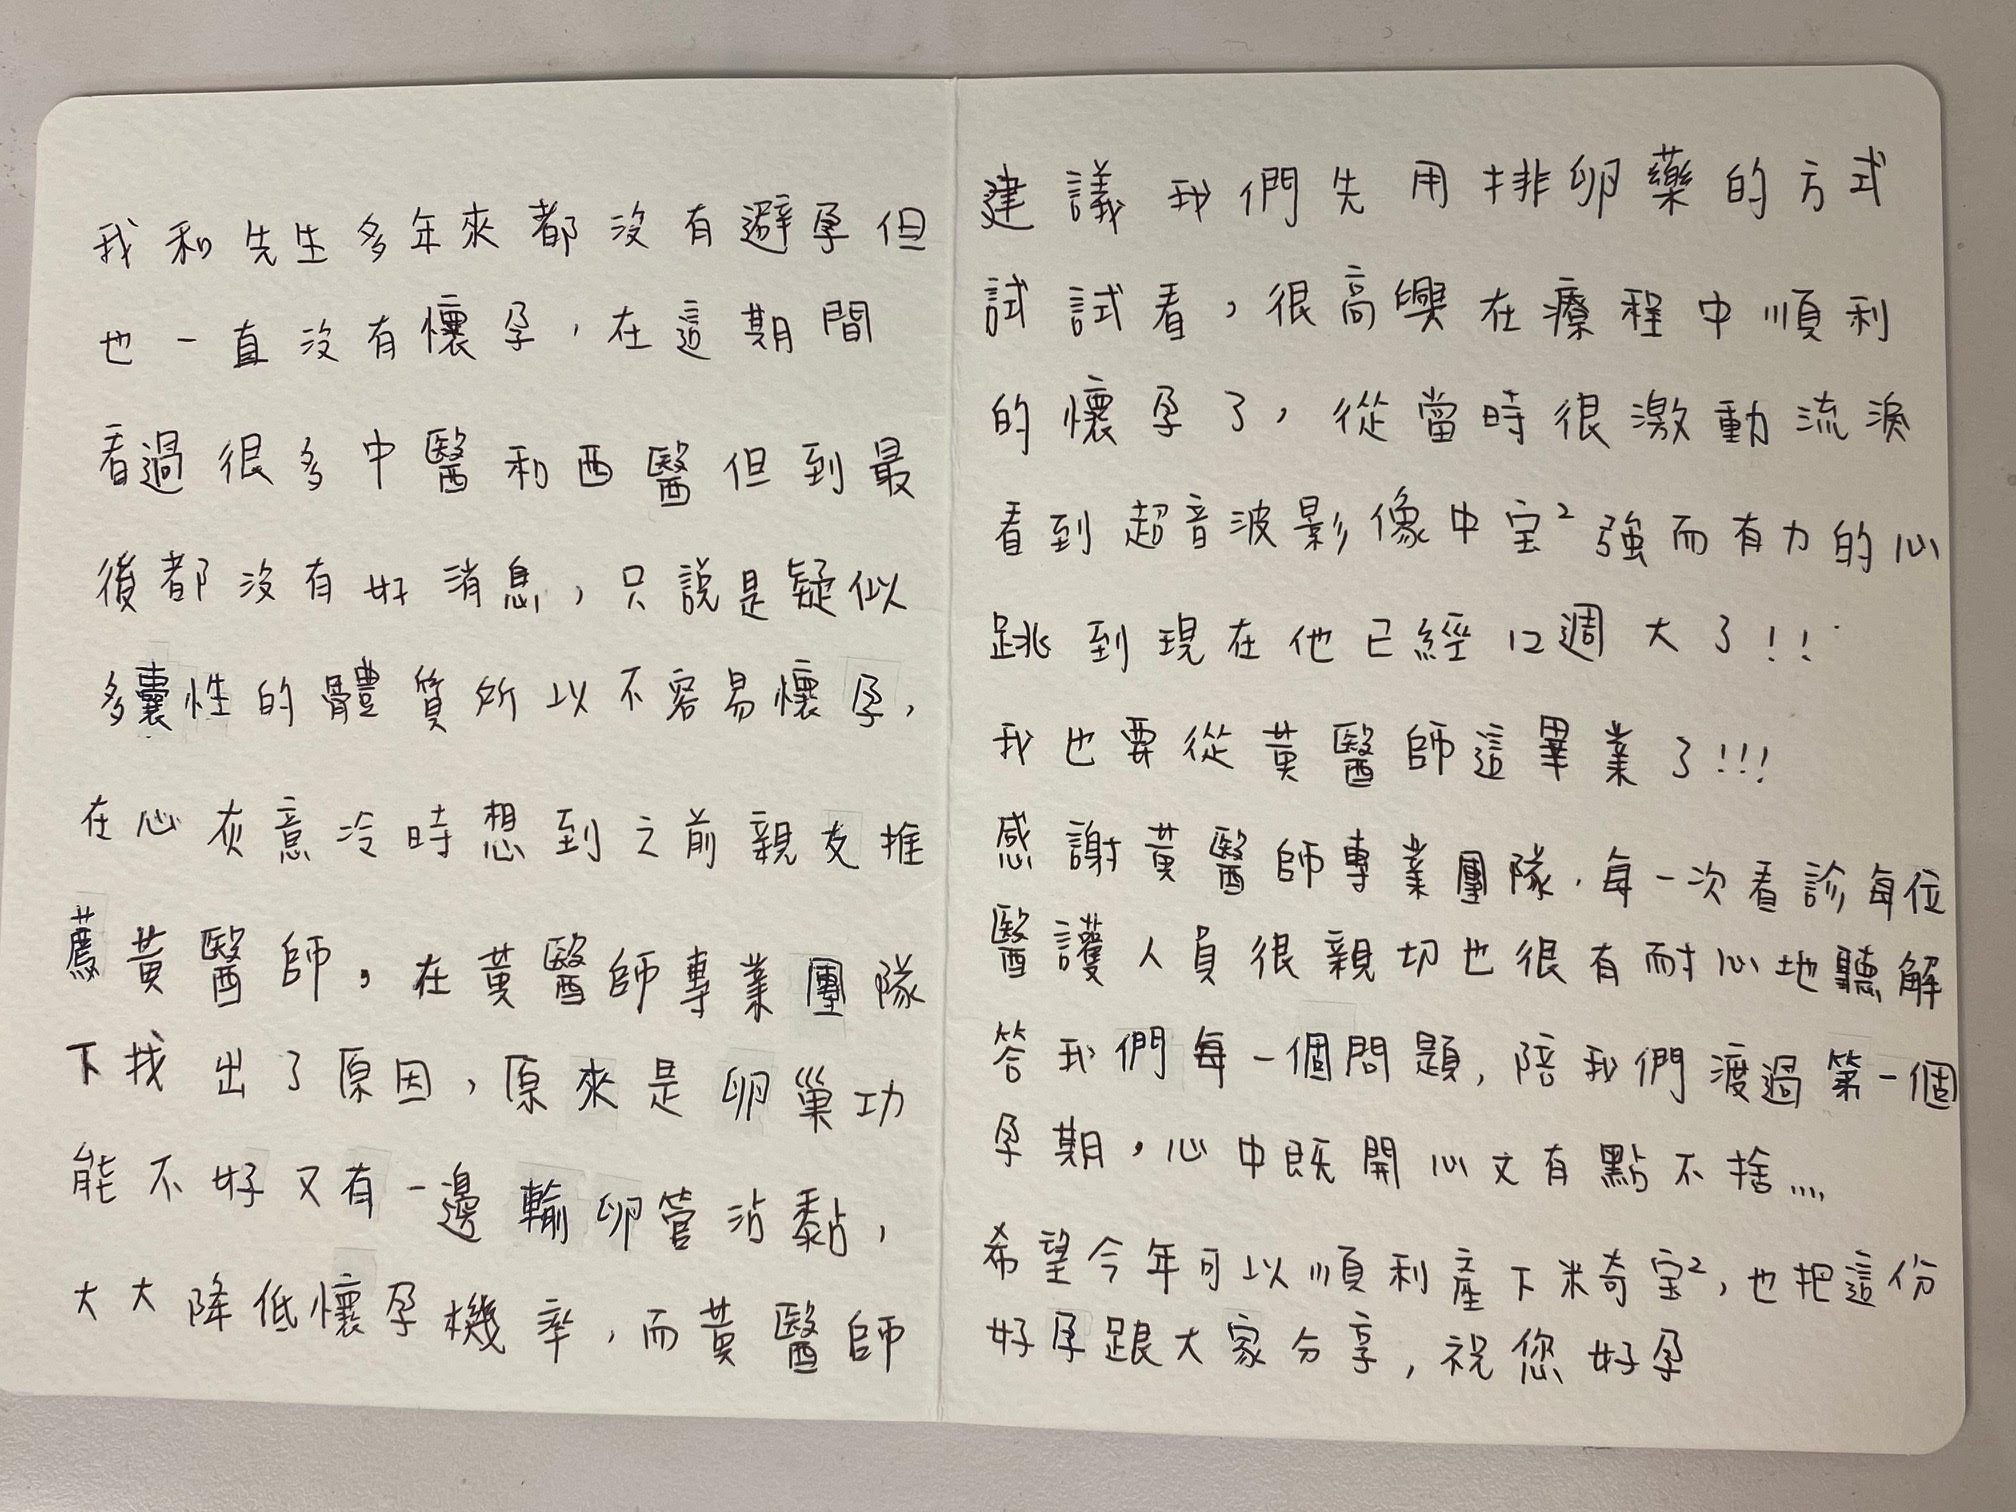 我和先生多年來都沒有避孕但
也一直沒有懷孕，在這期間
看過很多中醫和西醫但到最
後都沒有好消息，只說是疑似
多囊性的體質所以不容易懷孕，
在心灰意冷時想到之前親友推
薦黃醫師，在黃醫師專業團隊
下找出了原因，原來是卵巢功
能不好又有一邊輸卵管沾黏，
大大降低懷孕機率，而黃醫師
建議我們先用排卵藥的方式
試試看，很高興在療程中順利
的懷孕了，從當時很激動流淚
看到超音波影像中宝² 強而有力的心
跳到現在他已經12週大了!!
我也要從黃醫師這畢業了!!!
感謝黃醫師專業團隊，每一次看診每位
醫護人員很親切也很有耐心地聽解
答我們每一個問題，陪我們渡過第一個
孕期，心中既開心又有點不捨....
希望今年可以順利產下米奇宝²，也把這份
好孕跟大家分享，祝您好孕